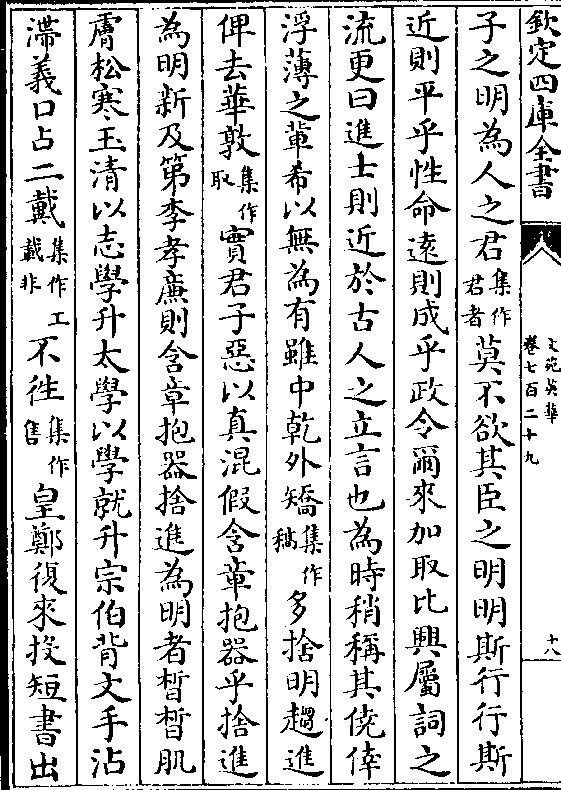 欽定四庫全書
文苑英華
卷七百二十九
十八
子之明為人之君集作君者莫不欲其臣之明明斯行行斯
近則平乎性命遠則成乎政令爾來加取比興屬詞之
流更曰進士則近於古人之立言也為時稍稱其僥倖
浮薄之輩希以無為有雖中乾外矯集作槁多捨明趨進
俾去華敦集作取實君子惡以真混假含章抱器乎捨進
為明新及第李孝廉則含章抱器捨進為明者晳晳肌
膚松寒玉清以志學升太學以學就升宗伯背文手沾
滯義口占二戴集作工載非不徃集作售皇鄭復來投短書出